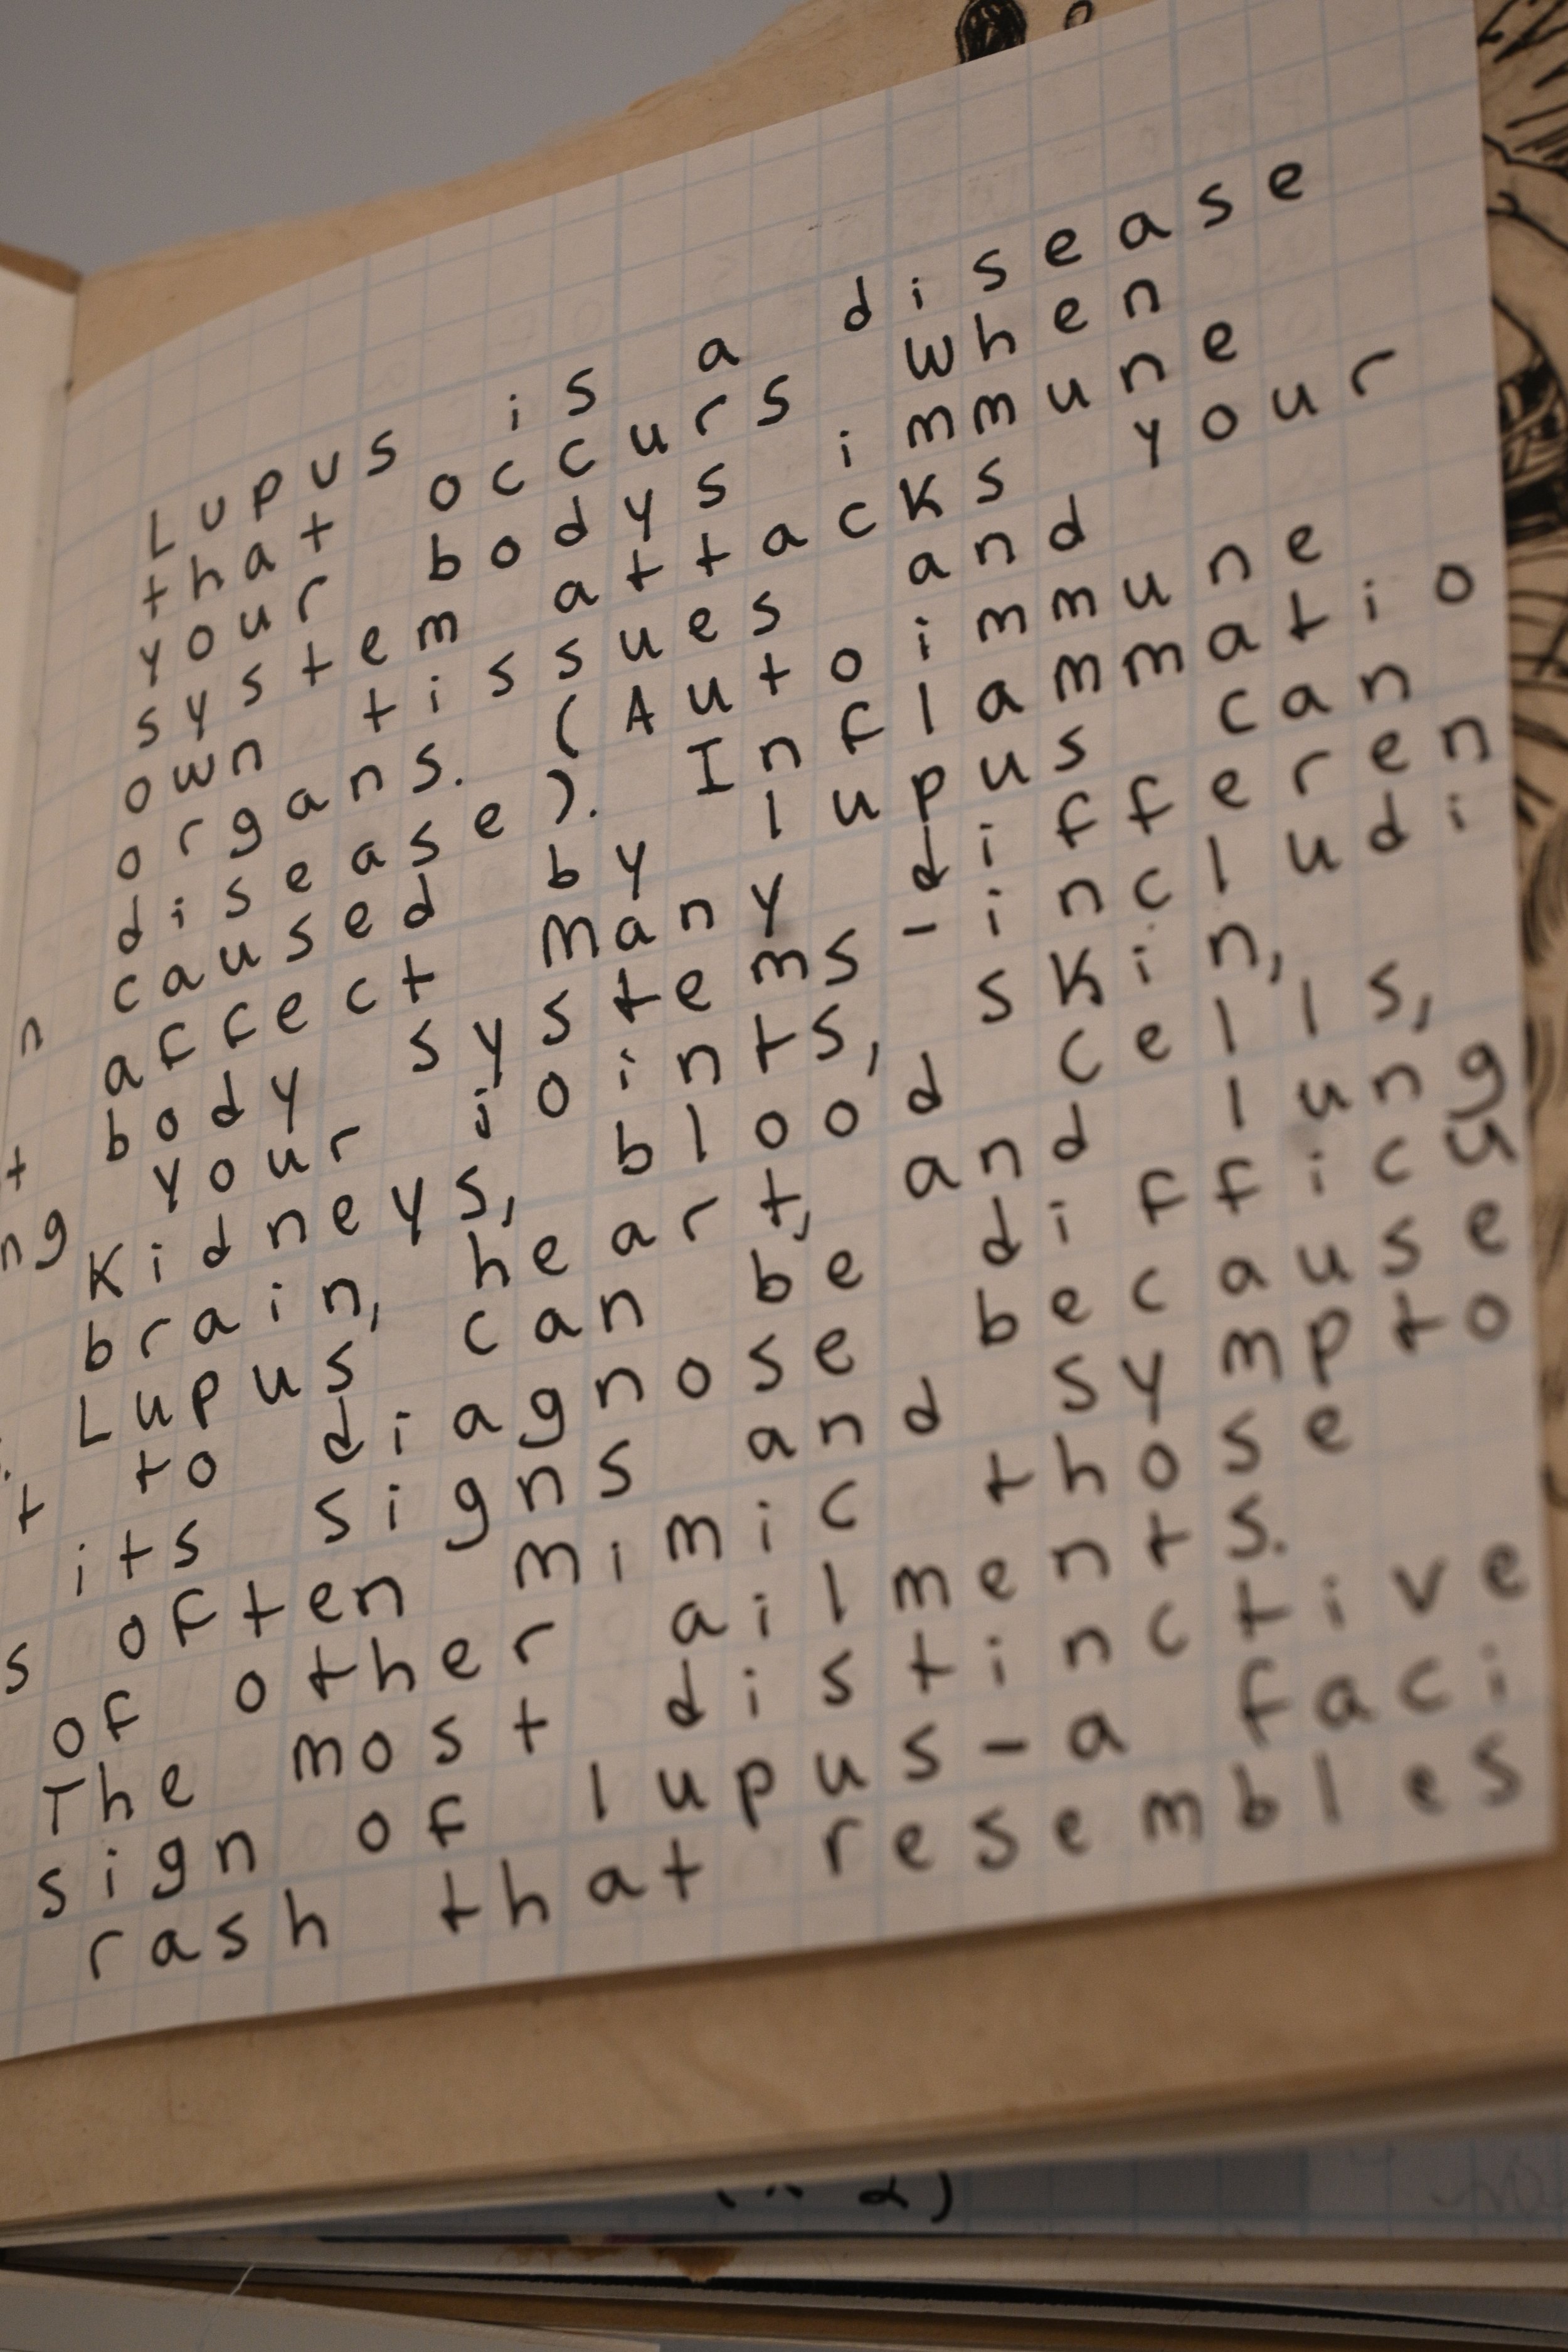 Lupus is a disease
that occurs when
your bodys immune
system attacks your
own tissues and
organs. (Autoimmune
disease). Inflammatio
n caused by lupus can
affect many differen
t body systems-includi
ng your joints, skin,
Kidneys, blood cells,
brain, heart, and lung
Lupus can be difficu
t to diagnose because
its signs and sympto
s often mimic those
of other ailments.
The most distinctive
sign of lupus-a faci
rash that resembles